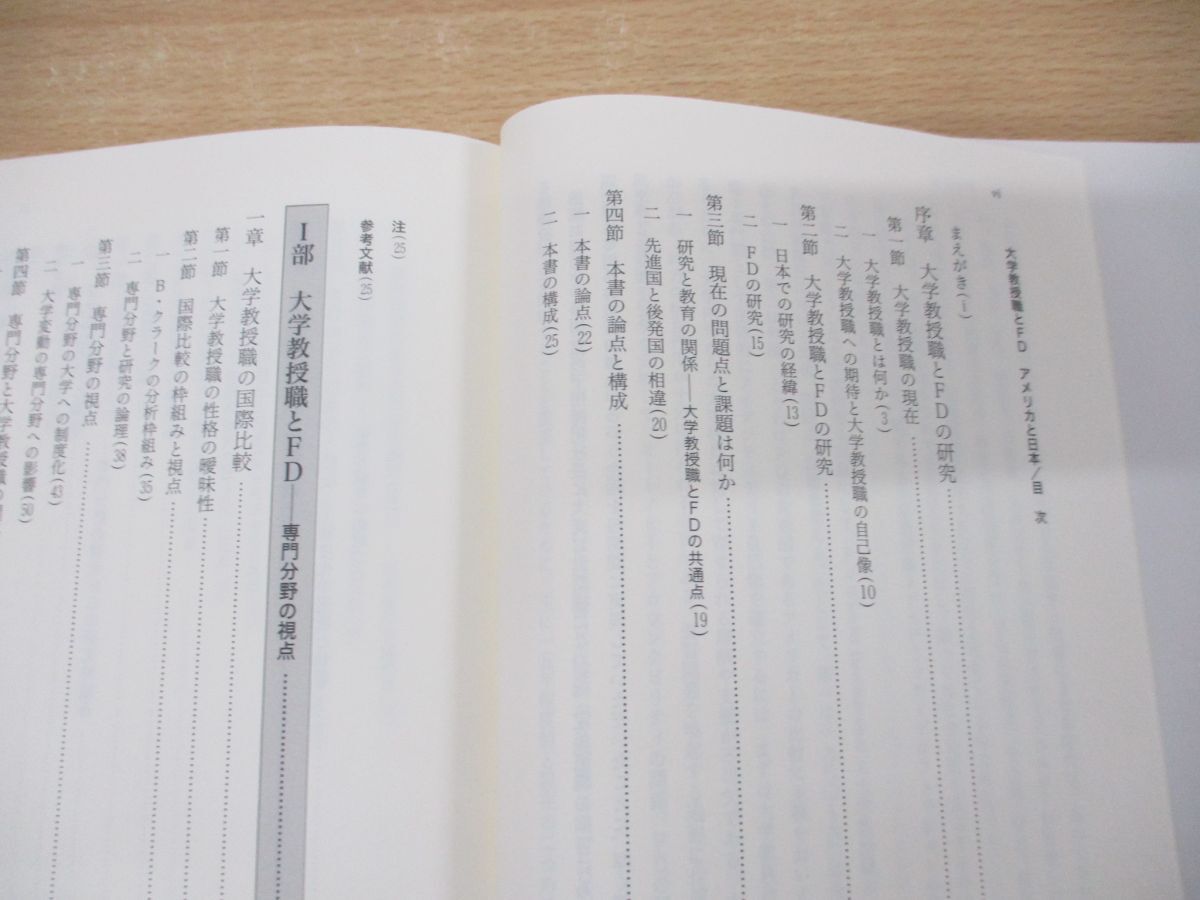 vi
大学教授職とFD アメリカと日本／目 次
まえがき(i)
序章 大学教授職とFDの研究
第一節 大学教授職の現在
一 大学教授職とは何か(3)
二 大学教授職への期待と大学教授職の自己像(10)
第二節 大学教授職とFDの研究
一 日本での研究の経緯(13)
二 FDの研究(15)
第三節 現在の問題点と課題は何か
一 研究と教育の関係――大学教授職とFDの共通点(19)
二 先進国と後発国の相違(20)
第四節 本書の論点と構成
一 本書の論点(22)
二 本書の構成(25)
注(25)
参考文献(25)
I部 大学教授職とFD――専門分野の視点
一章 大学教授職の国際比較
第一節 大学教授職の性格の曖昧性
第二節 国際比較の枠組みと視点
一 B・クラークの分析枠組み(35)
二 専門分野と研究の論理(38)
第三節 専門分野の視点
一 専門分野の大学への制度化(43)
二 大学変動の専門分野への影響(50)
第四節 専門分野と大学教授職の